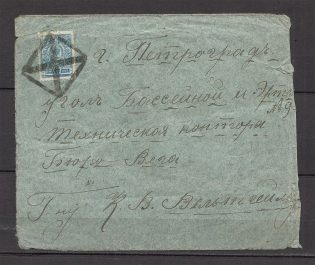 г. Петроградъ
уголъ Бассейной и Эрт
№ 9
Техническая контора
Бюро Вега
Г-ну К. В. Вельтчейм